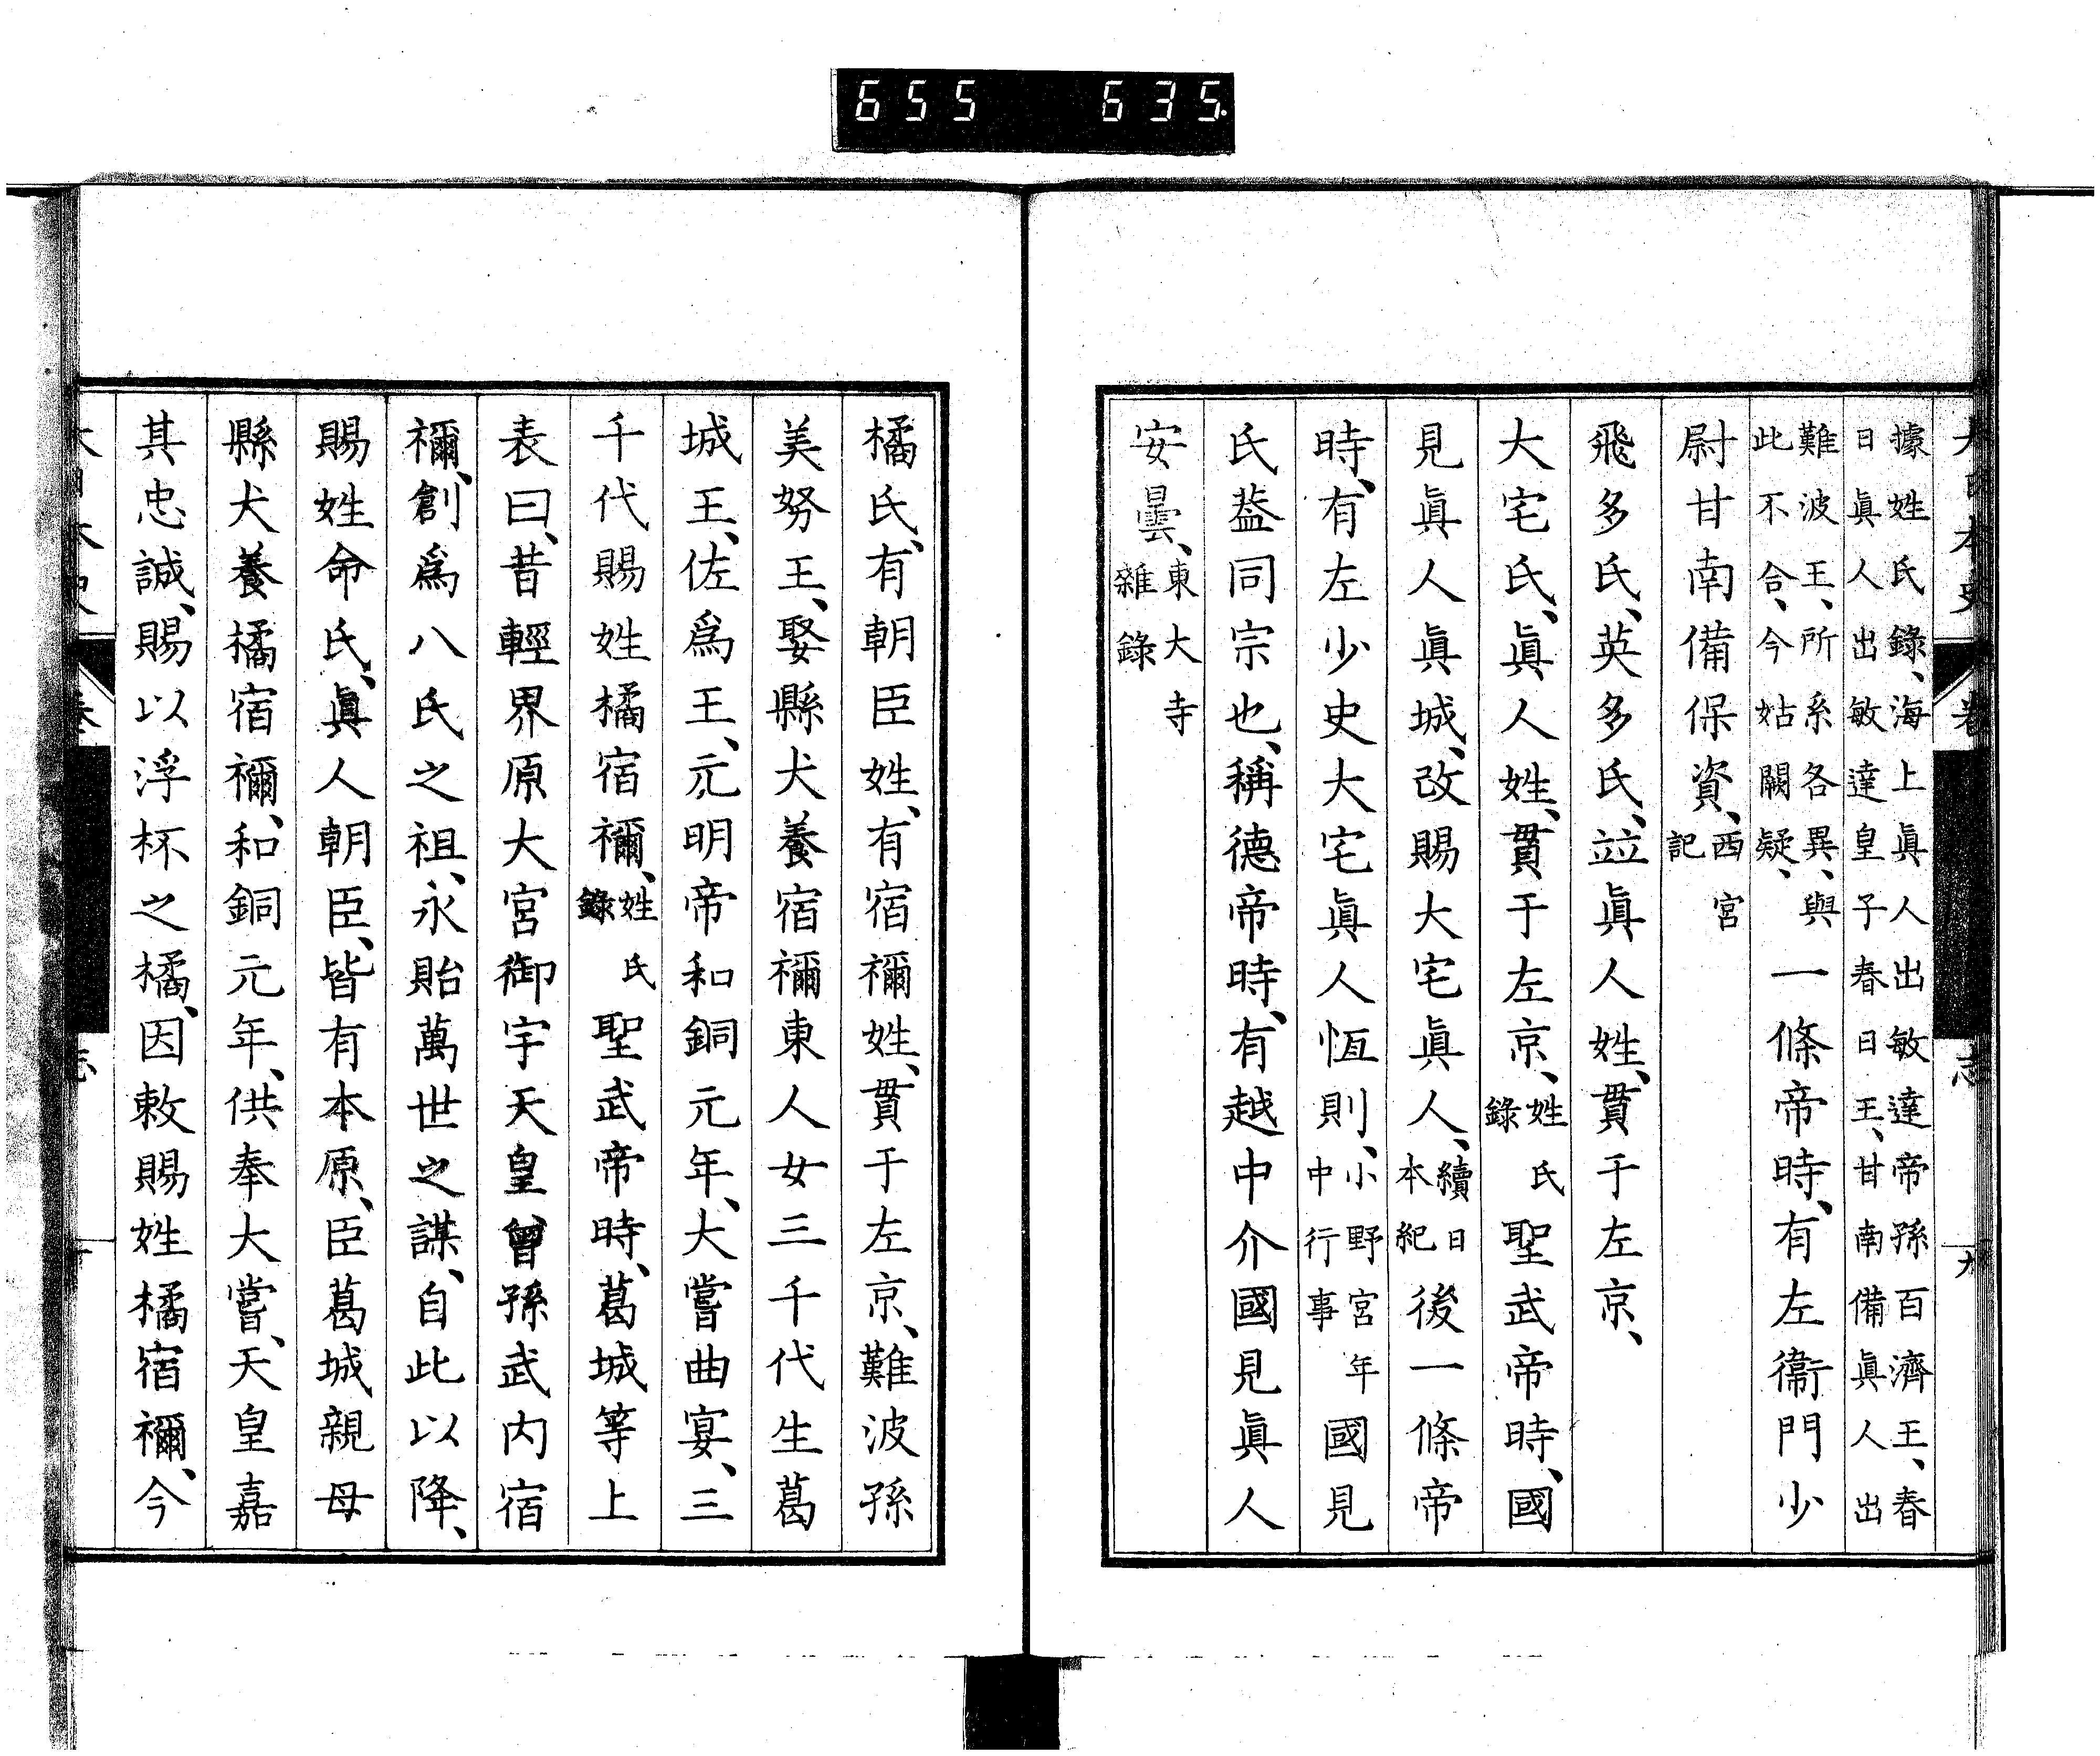 655 635
大日本史 卷 志
據姓氏錄、海上眞人出敏達帝孫百濟王、春
日眞人出敏達皇子春日王、甘南備眞人出
難波王、所系各異、與
此不合、今姑闕疑、
一條帝時、有左衞門少
尉甘南備保資、西宮
記
飛多氏、英多氏、竝眞人姓、貫于左京、
大宅氏、眞人姓、貫于左京、姓氏
錄
聖武帝時、國
見眞人眞城、改賜大宅眞人、續日
本紀
後一條帝
時、有左少史大宅眞人恆則、小野宮年
中行事
國見
氏葢同宗也、稱德帝時、有越中介國見眞人
安曇、東大寺
雜錄
橘氏、有朝臣姓、有宿禰姓、貫于左京、難波孫
美努王、娶縣犬養宿禰東人女三千代生葛
城王、佐爲王、元明帝和銅元年、大嘗曲宴、三
千代賜姓橘宿禰、姓氏
錄
聖武帝時、葛城等上
表曰、昔輕界原大宮御宇天皇、曾孫武内宿
禰、創爲八氏之祖、永貽萬世之謀、自此以降、
賜姓命氏、眞人朝臣、皆有本原、臣葛城親母
縣犬養橘宿禰、和銅元年、供奉大嘗、天皇嘉
其忠誠、賜以浮杯之橘、因敕賜姓橘宿禰、今